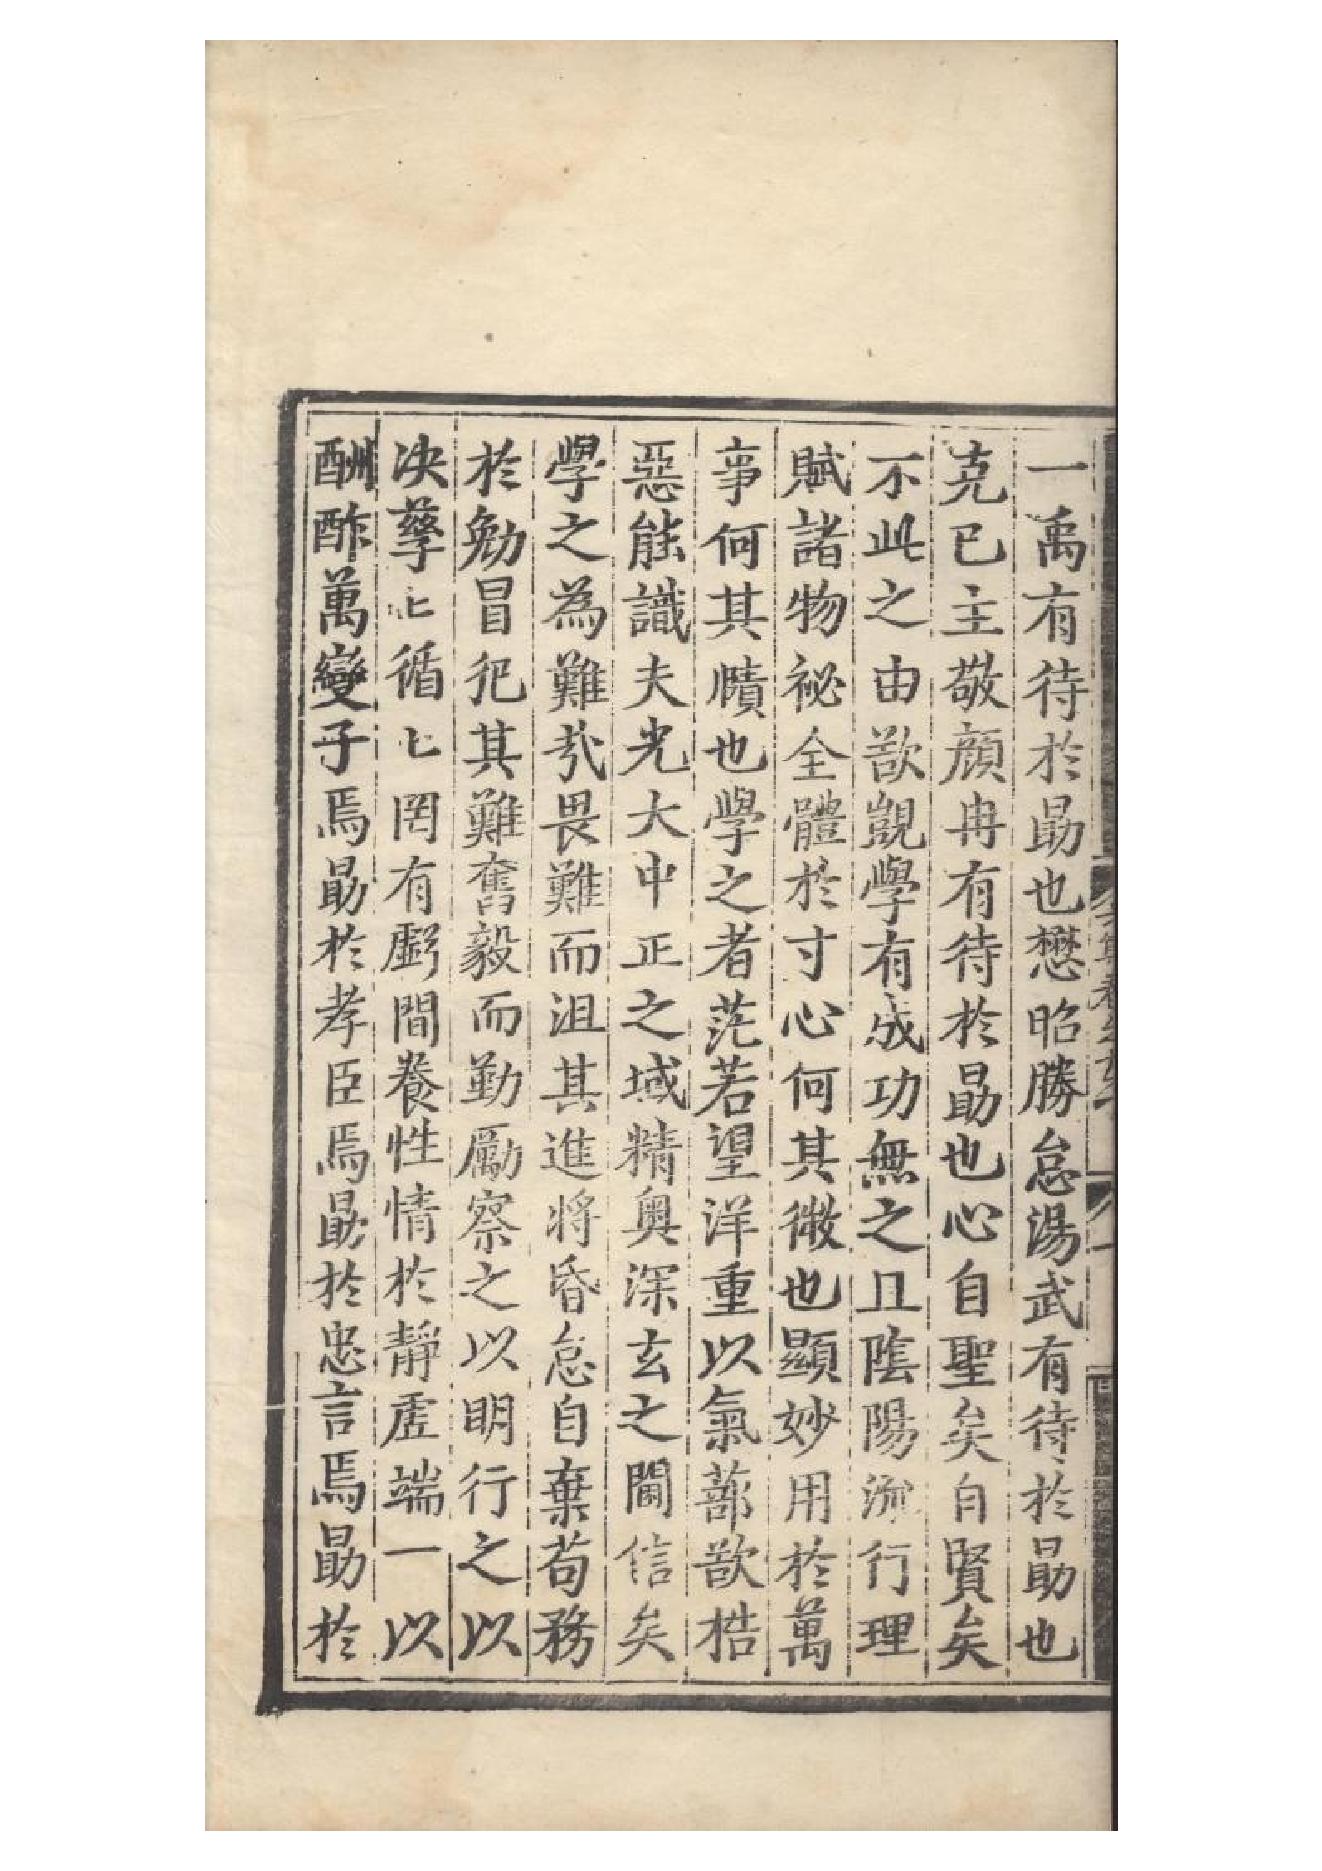 一禹有待於勗也懋昭勝怠湯武有待於勗也
克已主敬顔冉有待於勗也心自聖矣自賢矣
不此之由欲覬學有成功無之且隂陽流行理
賦諸物祕全體於寸心何其微也顯妙用於萬
事何其賾也學之者茫若望洋重以氣蔀欲梏
惡能識夫光大中正之域精奥深玄之閫信矣
學之為難㢤畏難而沮其進將昏怠自棄苟務
於勉冒犯其難奮毅而勤勵察之以明行之以
决孳〻循〻罔有虧間養性情於靜虛端一以
酬酢萬變子焉勗於孝臣焉勗於忠言焉勗於